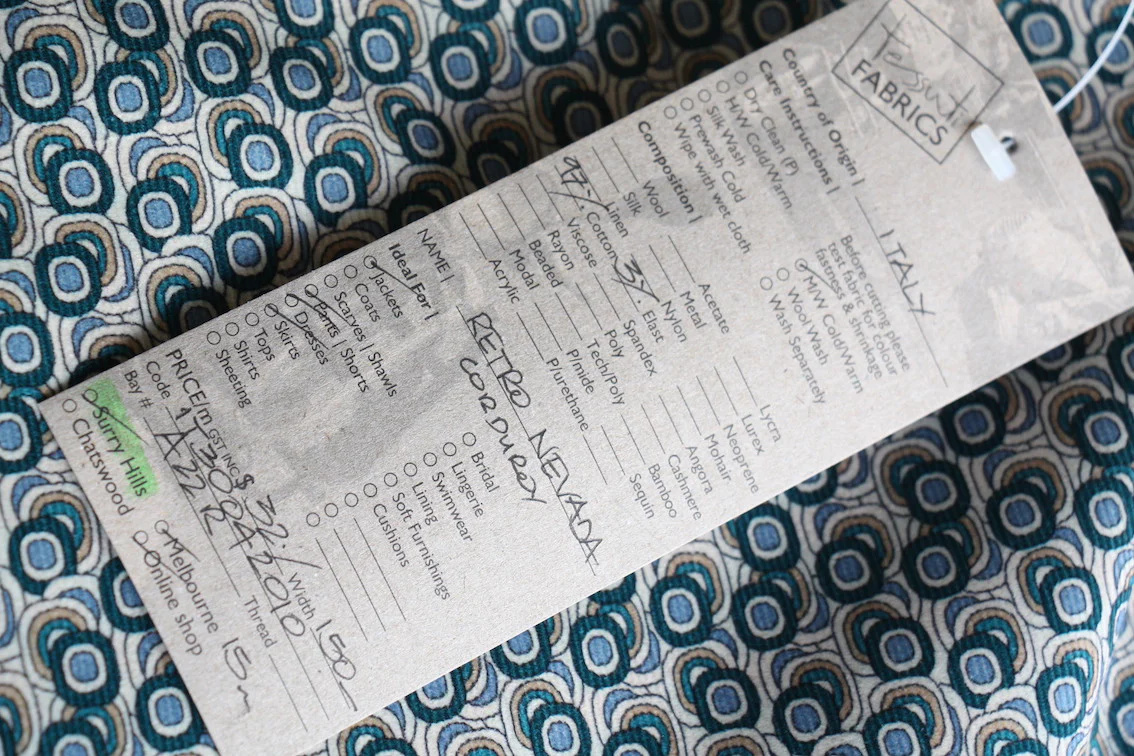 Tessuti
FABRICS
Country of Origin | ITALY
Care Instructions |
Dry Clean (P)
H/W Cold/Warm
Silk Wash
Prewash Cold
Wipe with wet cloth
Before cutting please
test fabric for colour
fastness & shrinkage
M/W Cold/Warm
Wool Wash
Wash Separately
Composition |
Wool
Silk
Linen
97% Cotton
Viscose
Rayon
Beaded
Modal
Acrylic
Acetate
Metal
Nylon
3% Elast
Spandex
Poly
Tech/Poly
P/mide
P/urethane
Lycra
Lurex
Neoprene
Mohair
Angora
Cashmere
Bamboo
Sequin
NAME | RETRO NEVADA
CORDUROY
Ideal For |
Jackets
Coats
Scarves | Shawls
Pants | Shorts
Dresses
Skirts
Tops
Shirts
Sheeting
Bridal
Lingerie
Swimwear
Lining
Soft Furnishings
Cushions
PRICE/m GST INC $ 32.- Width 150
Code
Bay # A22 R Thread
Surry Hills
Chatswood
Melbourne 15m
Online shop